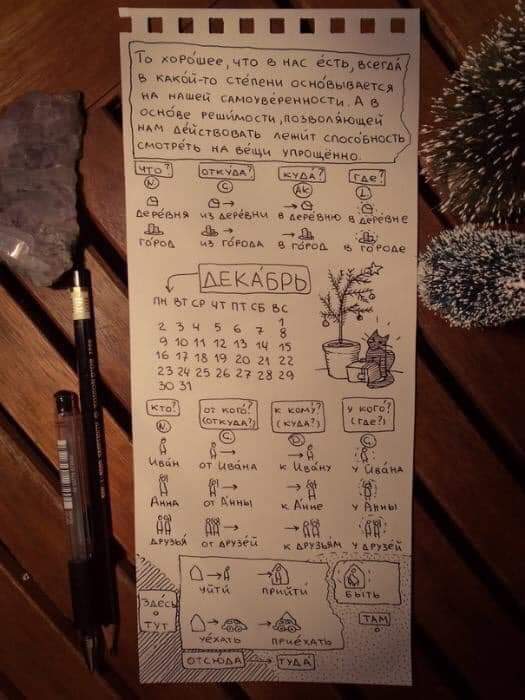 То хоро́шее, что в нас е́сть, всегда́
в како́й-то сте́пени осно́вывается
на нашей самоуве́ренности. А в
осно́ве реши́мости, позволя́ющей
нам де́йствовать лежи́т спосо́бность
смотре́ть на ве́щи упрощённо.
что? отку́да? куда́? где?
N G Ak L
дере́вня из дере́вни в дере́вню в дере́вне
го́род из го́рода в го́род в го́роде
ДЕКА́БРЬ
ПН ВТ СР ЧТ ПТ СБ ВС
1
2 3 4 5 6 7 8
9 10 11 12 13 14 15
16 17 18 19 20 21 22
23 24 25 26 27 28 29
30 31
кто? от кого́? к кому́? у кого́?
(отку́да?) (куда́?) (где?)
N G D G
Ива́н от Ива́на к Ива́ну у Ива́на
Анна от А́нны к А́нне у А́нны
друзья́ от друзе́й к друзья́м у друзе́й
уйти́ прийти́ быть
зде́сь
тут
там
уе́хать прие́хать
отсюда туда́